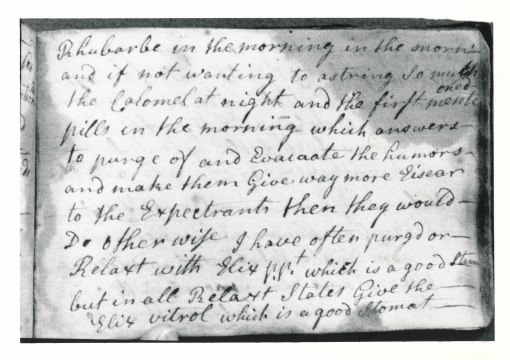 Rhubarbe in the morning in the morni
and if not wanting to astring so much
the Calomel at night and the first mentioned
pills in the morning which answers
to purge of and Evacuate the humors
and make them Give way more Eisear
to the Expectrants then they would
Do otherwise I have often purgd or
Relaxt with Elix pp.t which is a good Stom
but in all Relaxt States Give the
Elix vitrol which is a good Stomat